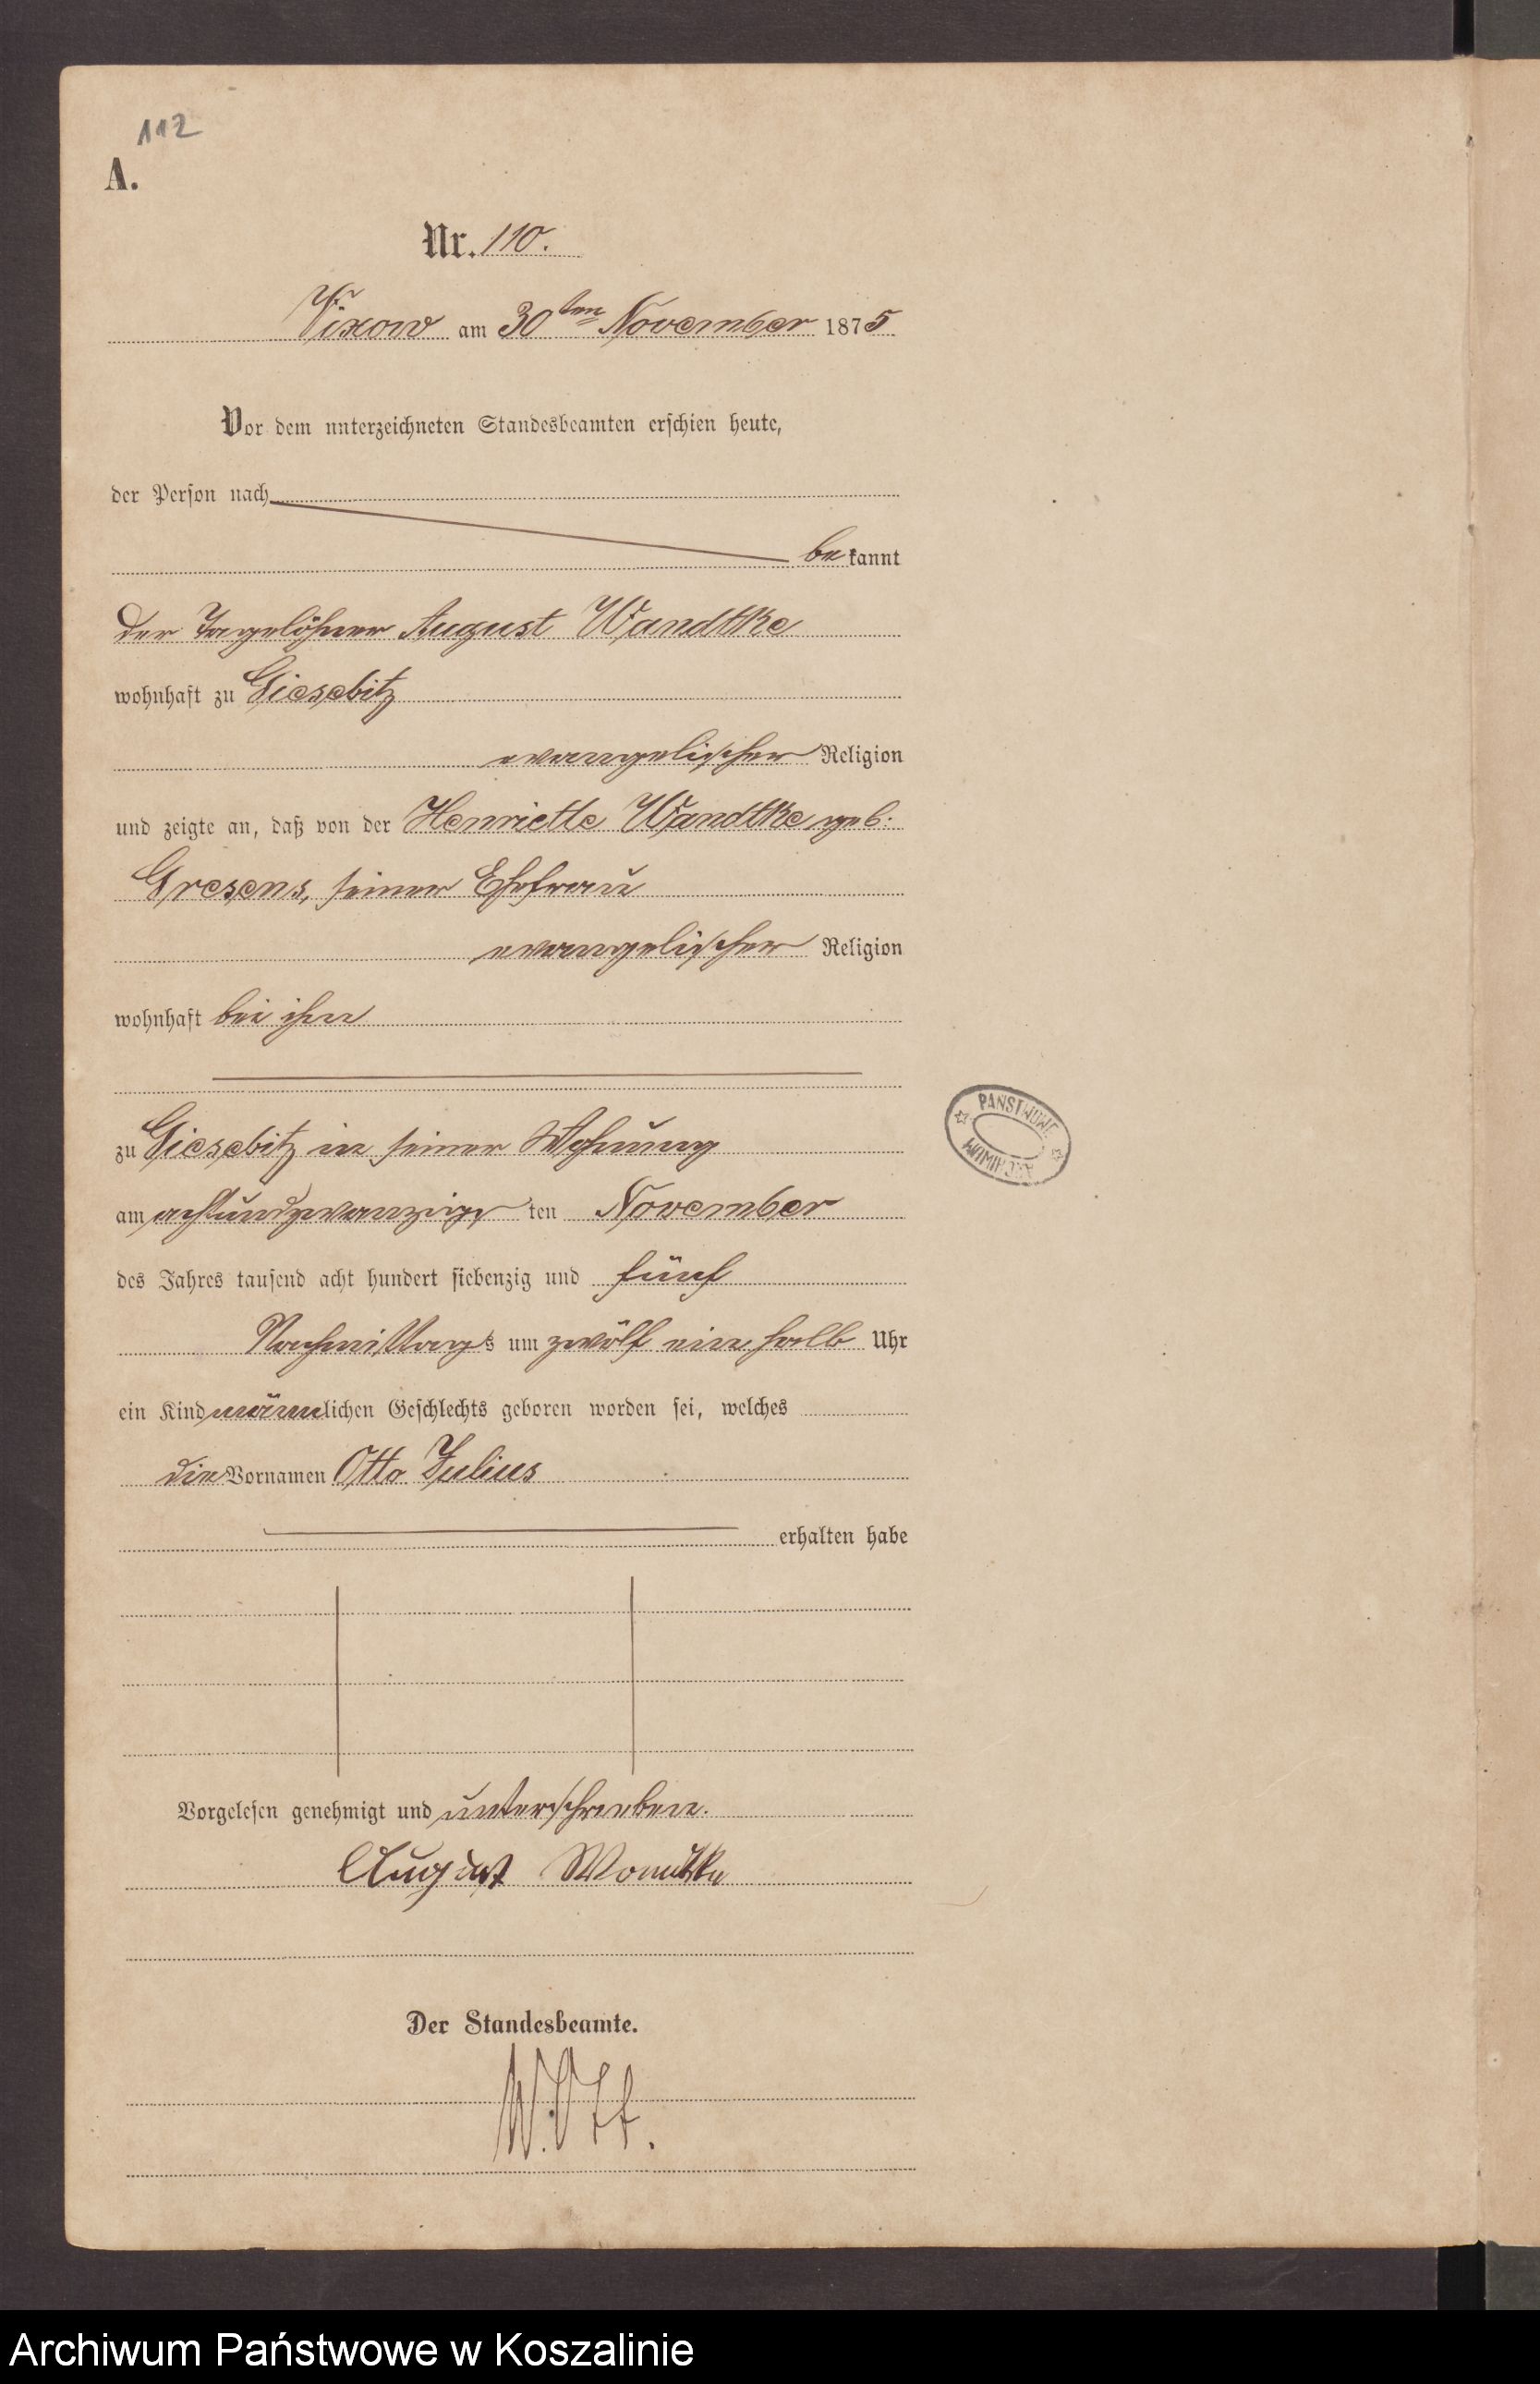 112
A.
Nr. 110.
Vixow am 30ten November 1875
Vor dem unterzeichneten Standesbeamten erschien heute,
der Person nach
bekannt
der Tagelöhner August Wandtke
wohnhaft zu Giesebitz
evangelischer Religion
und zeigte an, daß von der Henriette Wandtke geb.
Gresens, seiner Ehefrau
evangelischer Religion
wohnhaft bei ihm
zu Giesebitz in seiner Wohnung
am achtundzwanzigsten November
des Jahres tausend acht hundert siebenzig und fünf
Nachmittags um zwölf ein halb Uhr
ein Kind männlichen Geschlechts geboren worden sei, welches
die Vornamen Otto Julius
erhalten habe
Vorgelesen genehmigt und unterschrieben.
August
Der Standesbeamte.
PANSTWOWE
ARCHIWUM
Archiwum Państwowe w Koszalinie